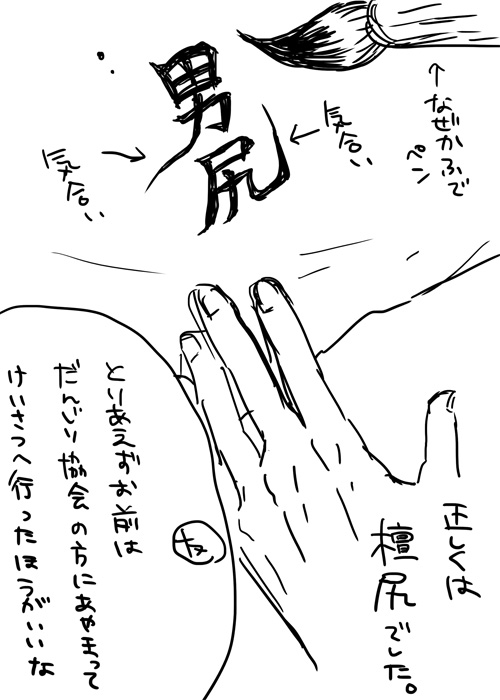 なぜかふで
ペン
気合い
男尻
気合い
正しくは
檀尻でした。
とりあえずお前は
だんじり協会の方にあやまって
けいさつへ行ったほうがいいな